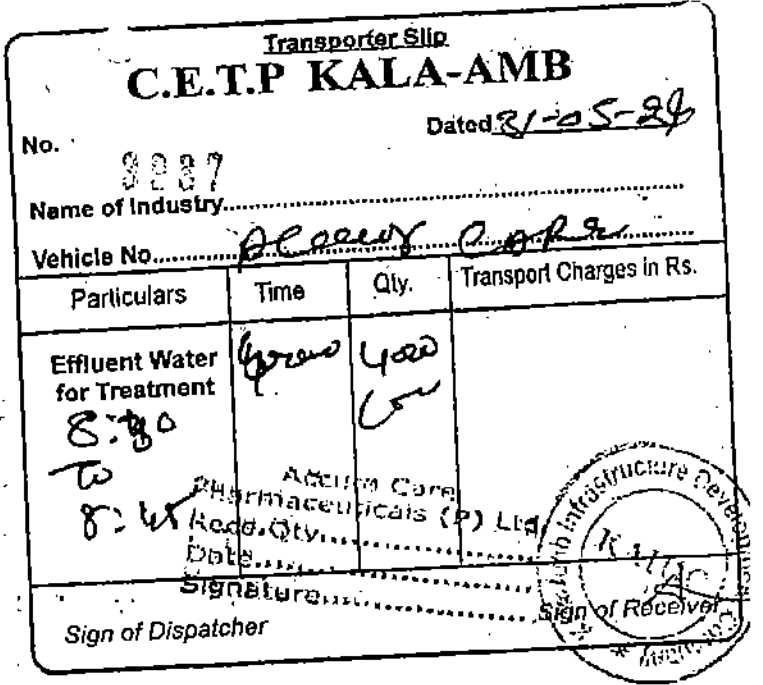 Transporter Slip
C.E.T.P KALA-AMB
No.
Dated 31-05-24
3237
Name of Industry
Vehicle No. Care
Particulars Time Qty. Transport Charges in Rs.
Effluent Water
for Treatment
4000
8:30
To
8:45
Accura Care
Pharmaceuticals (P) Ltd.
Recd. Qty.
Date
Signature
Sign of Dispatcher
Sign of Receiver
Kala Amb Infrastructure Development Company